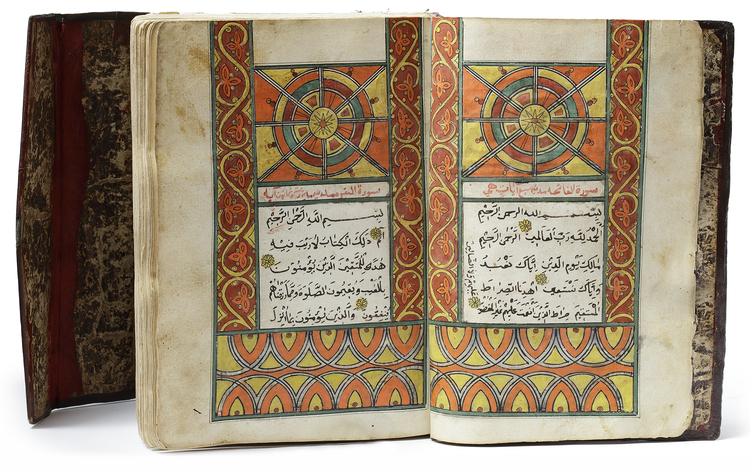 سورة الفاتحه سبع ايات
بسم الله الرحمن الرحيم
الحمد لله رب العالمين الرحمن الرحيم
مالك يوم الدين اياك نعبد
واياك نستعين اهدنا الصراط
المستقيم صراط الذين انعمت عليهم غير المغضوب
عليهم ولا الضالين
سورة البقره
بسم الله الرحمن الرحيم
الم ذلك الكتاب لا ريب فيه
هدى للمتقين الذين يؤمنون
بالغيب ويقيمون الصلوة ومما رزقناهم
ينفقون والذين يؤمنون بما انزل